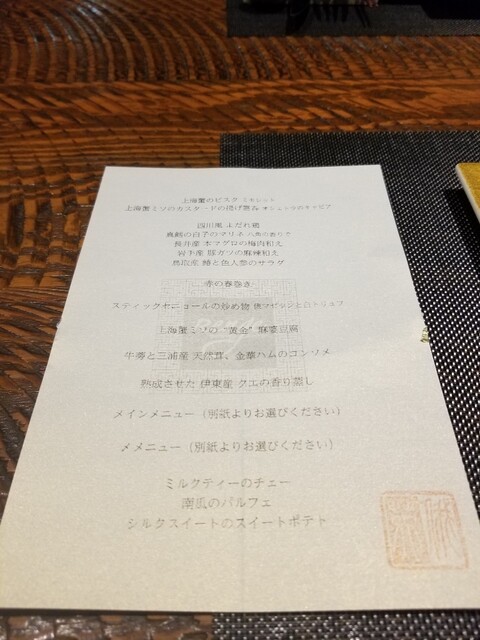 上海蟹のビスク
上海蟹ミソのカスタードの揚げ
四川風 よだれ鶏
真鱈の白子のマリネ 八角の香りで
長井産 本マグロの梅肉和え
岩手産 豚ガツの麻辣和え
鳥取産 鰆と色人参のサラダ
赤の春巻き
スティックセニョールの炒め物
上海蟹ミソの"黄金"麻婆豆腐
牛蒡と三浦産 天然茸、金華ハムのコンソメ
熟成させた 伊東産 クエの香り蒸し
メインメニュー（別紙よりお選びください）
〆メニュー（別紙よりお選びください）
ミルクティーのチェー
南瓜のパルフェ
シルクスイートのスイートポテト